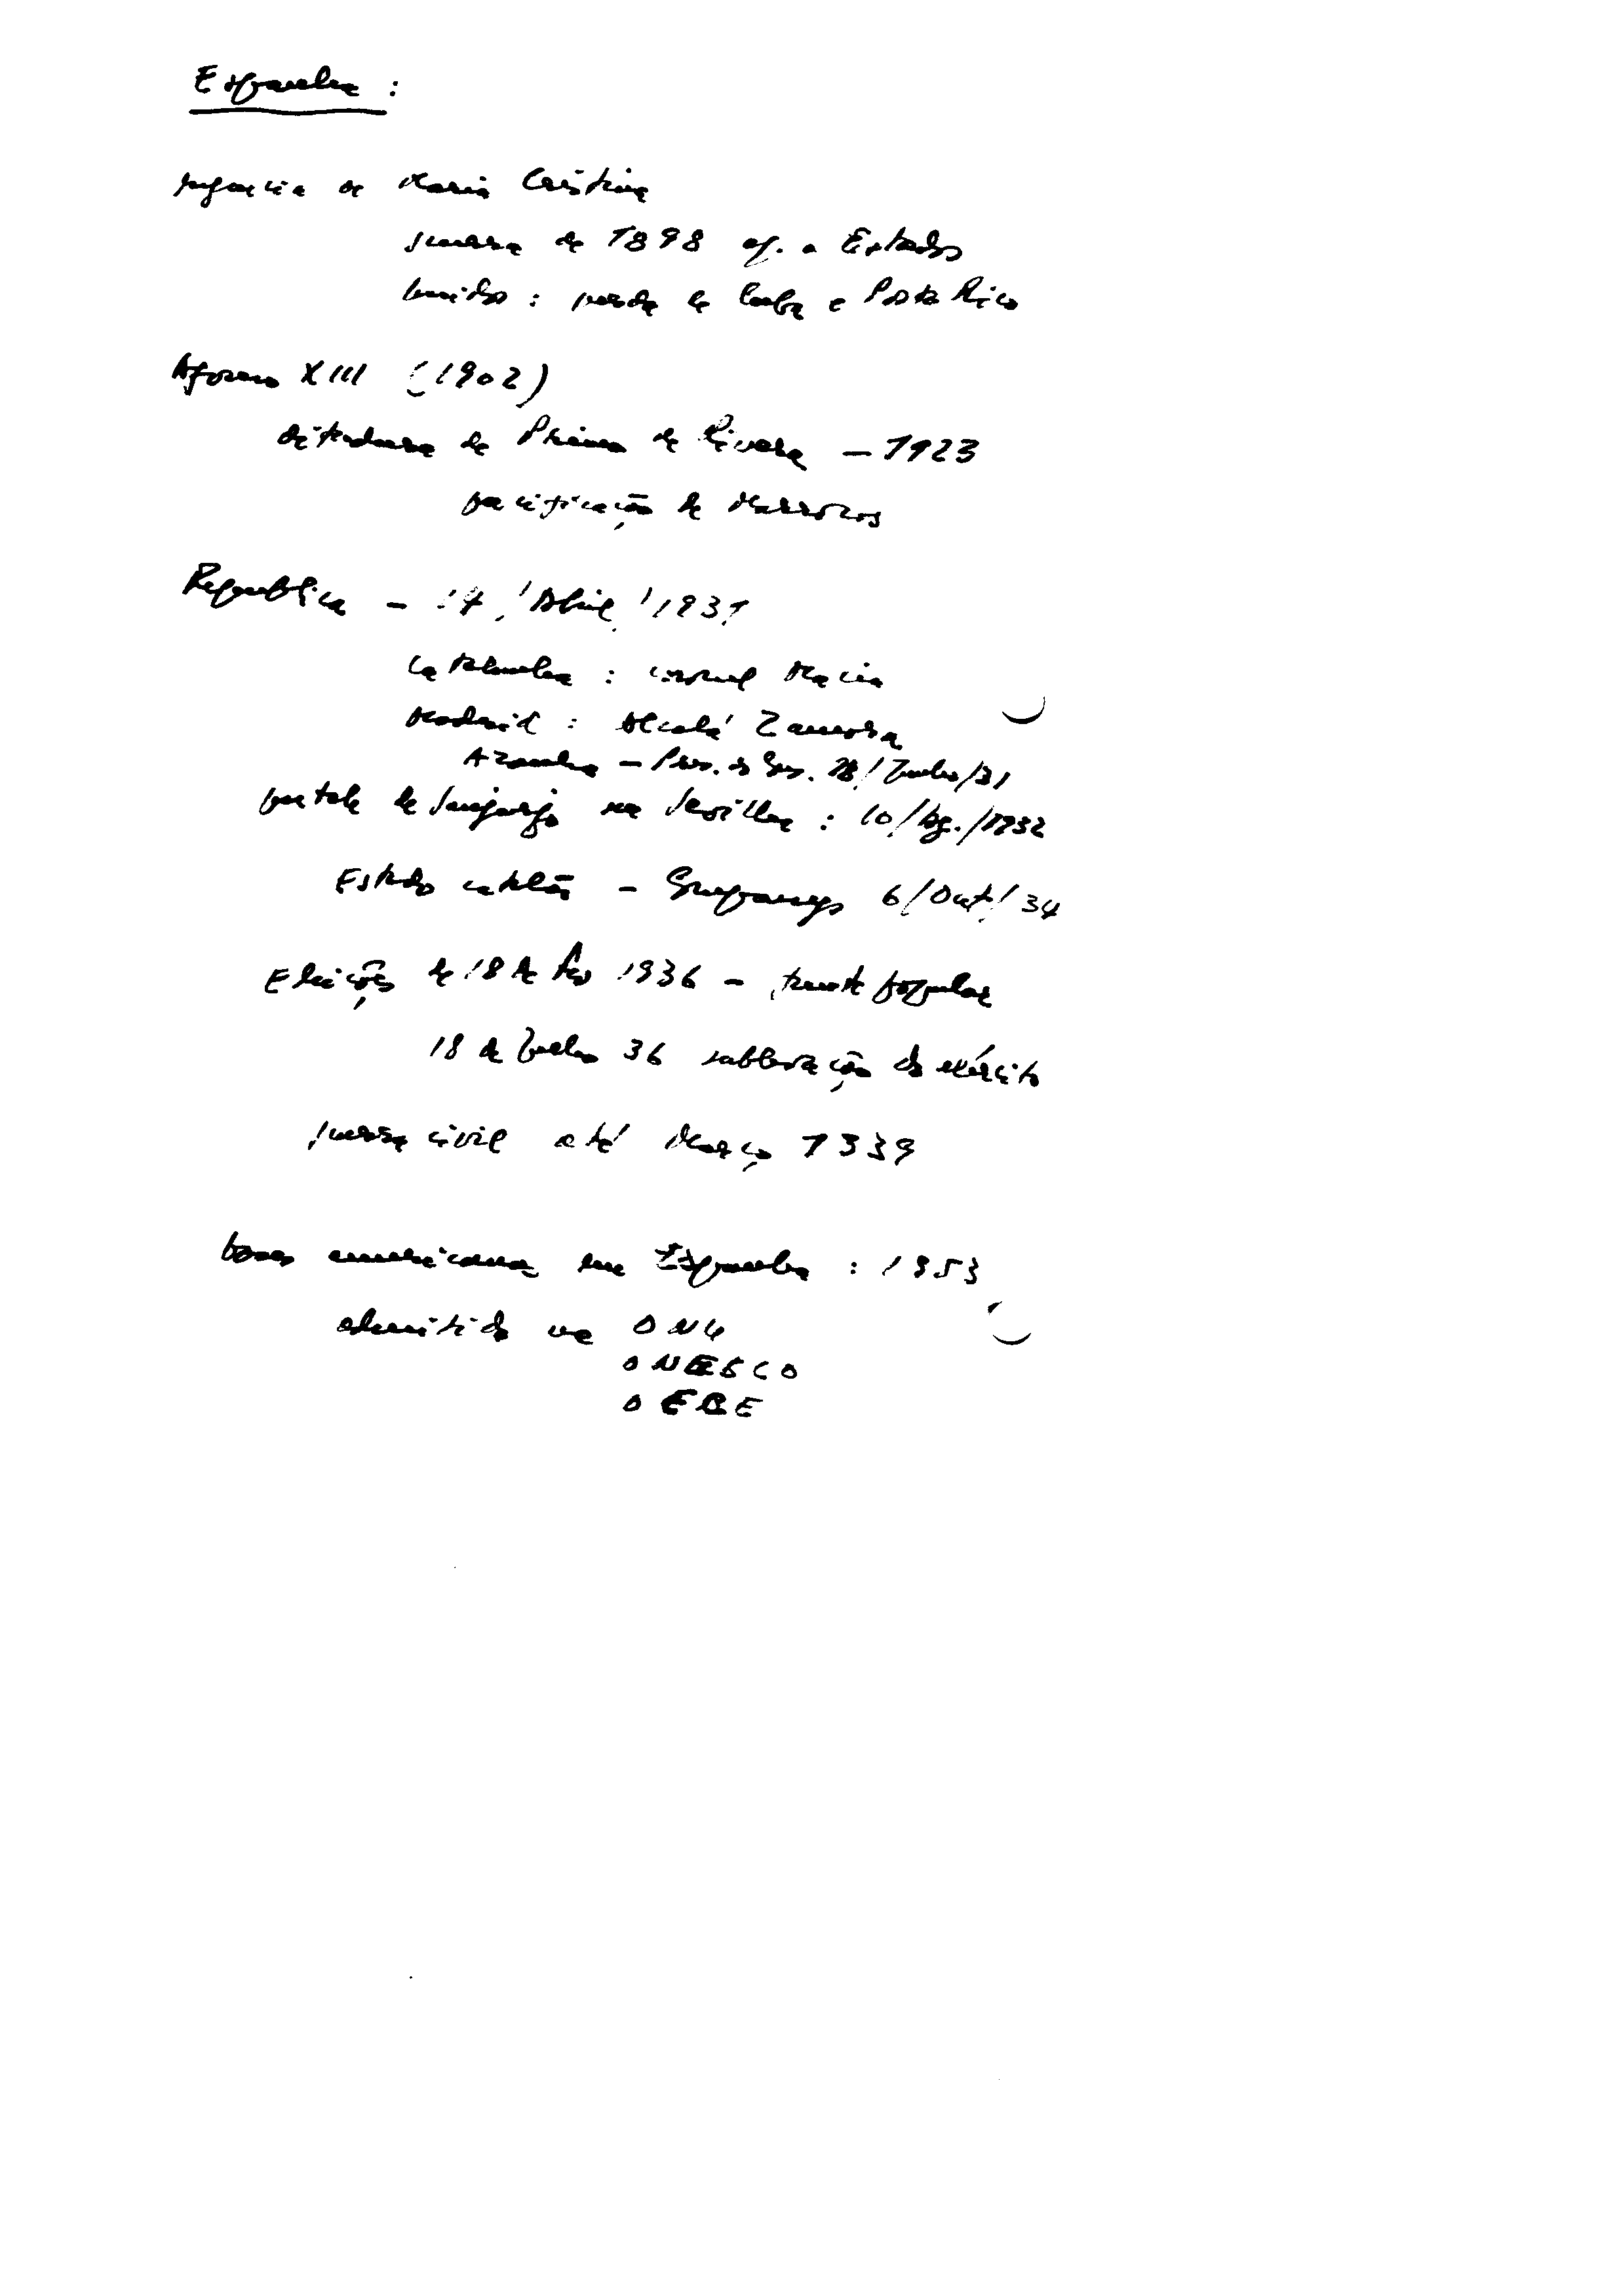 Espanha :
regencia de Maria Cristina
guerra de 1898 c/. o Estados
Unidos : perda de Cuba e Porto Rico
Afonso XIII (1902)
ditadura de Primo de Rivera – 1923
pacificação de Marrocos
Republica – 14 / Abril / 1931
Catalunha : coronel Macia
Madrid : Alcalá Zamora
Azanha – Pres. do Gov. /Junho/31
de Sanjurjo na Sevilha : 10/Ag./1932
Estado catalão – 6/Out/34
Eleições de 18 de Fev 1936 – frente popular
18 de Julho 36 sublevação do exército
guerra civil até Março 1939
bases americanas em Espanha : 1953
admitida na ONU
ONESCO
OECE